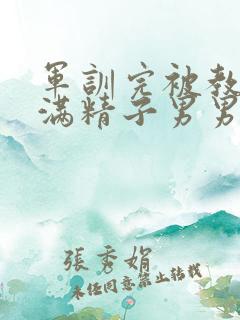 軍訓完被教
滿精子男男
張秀娟
未任同意禁止转载